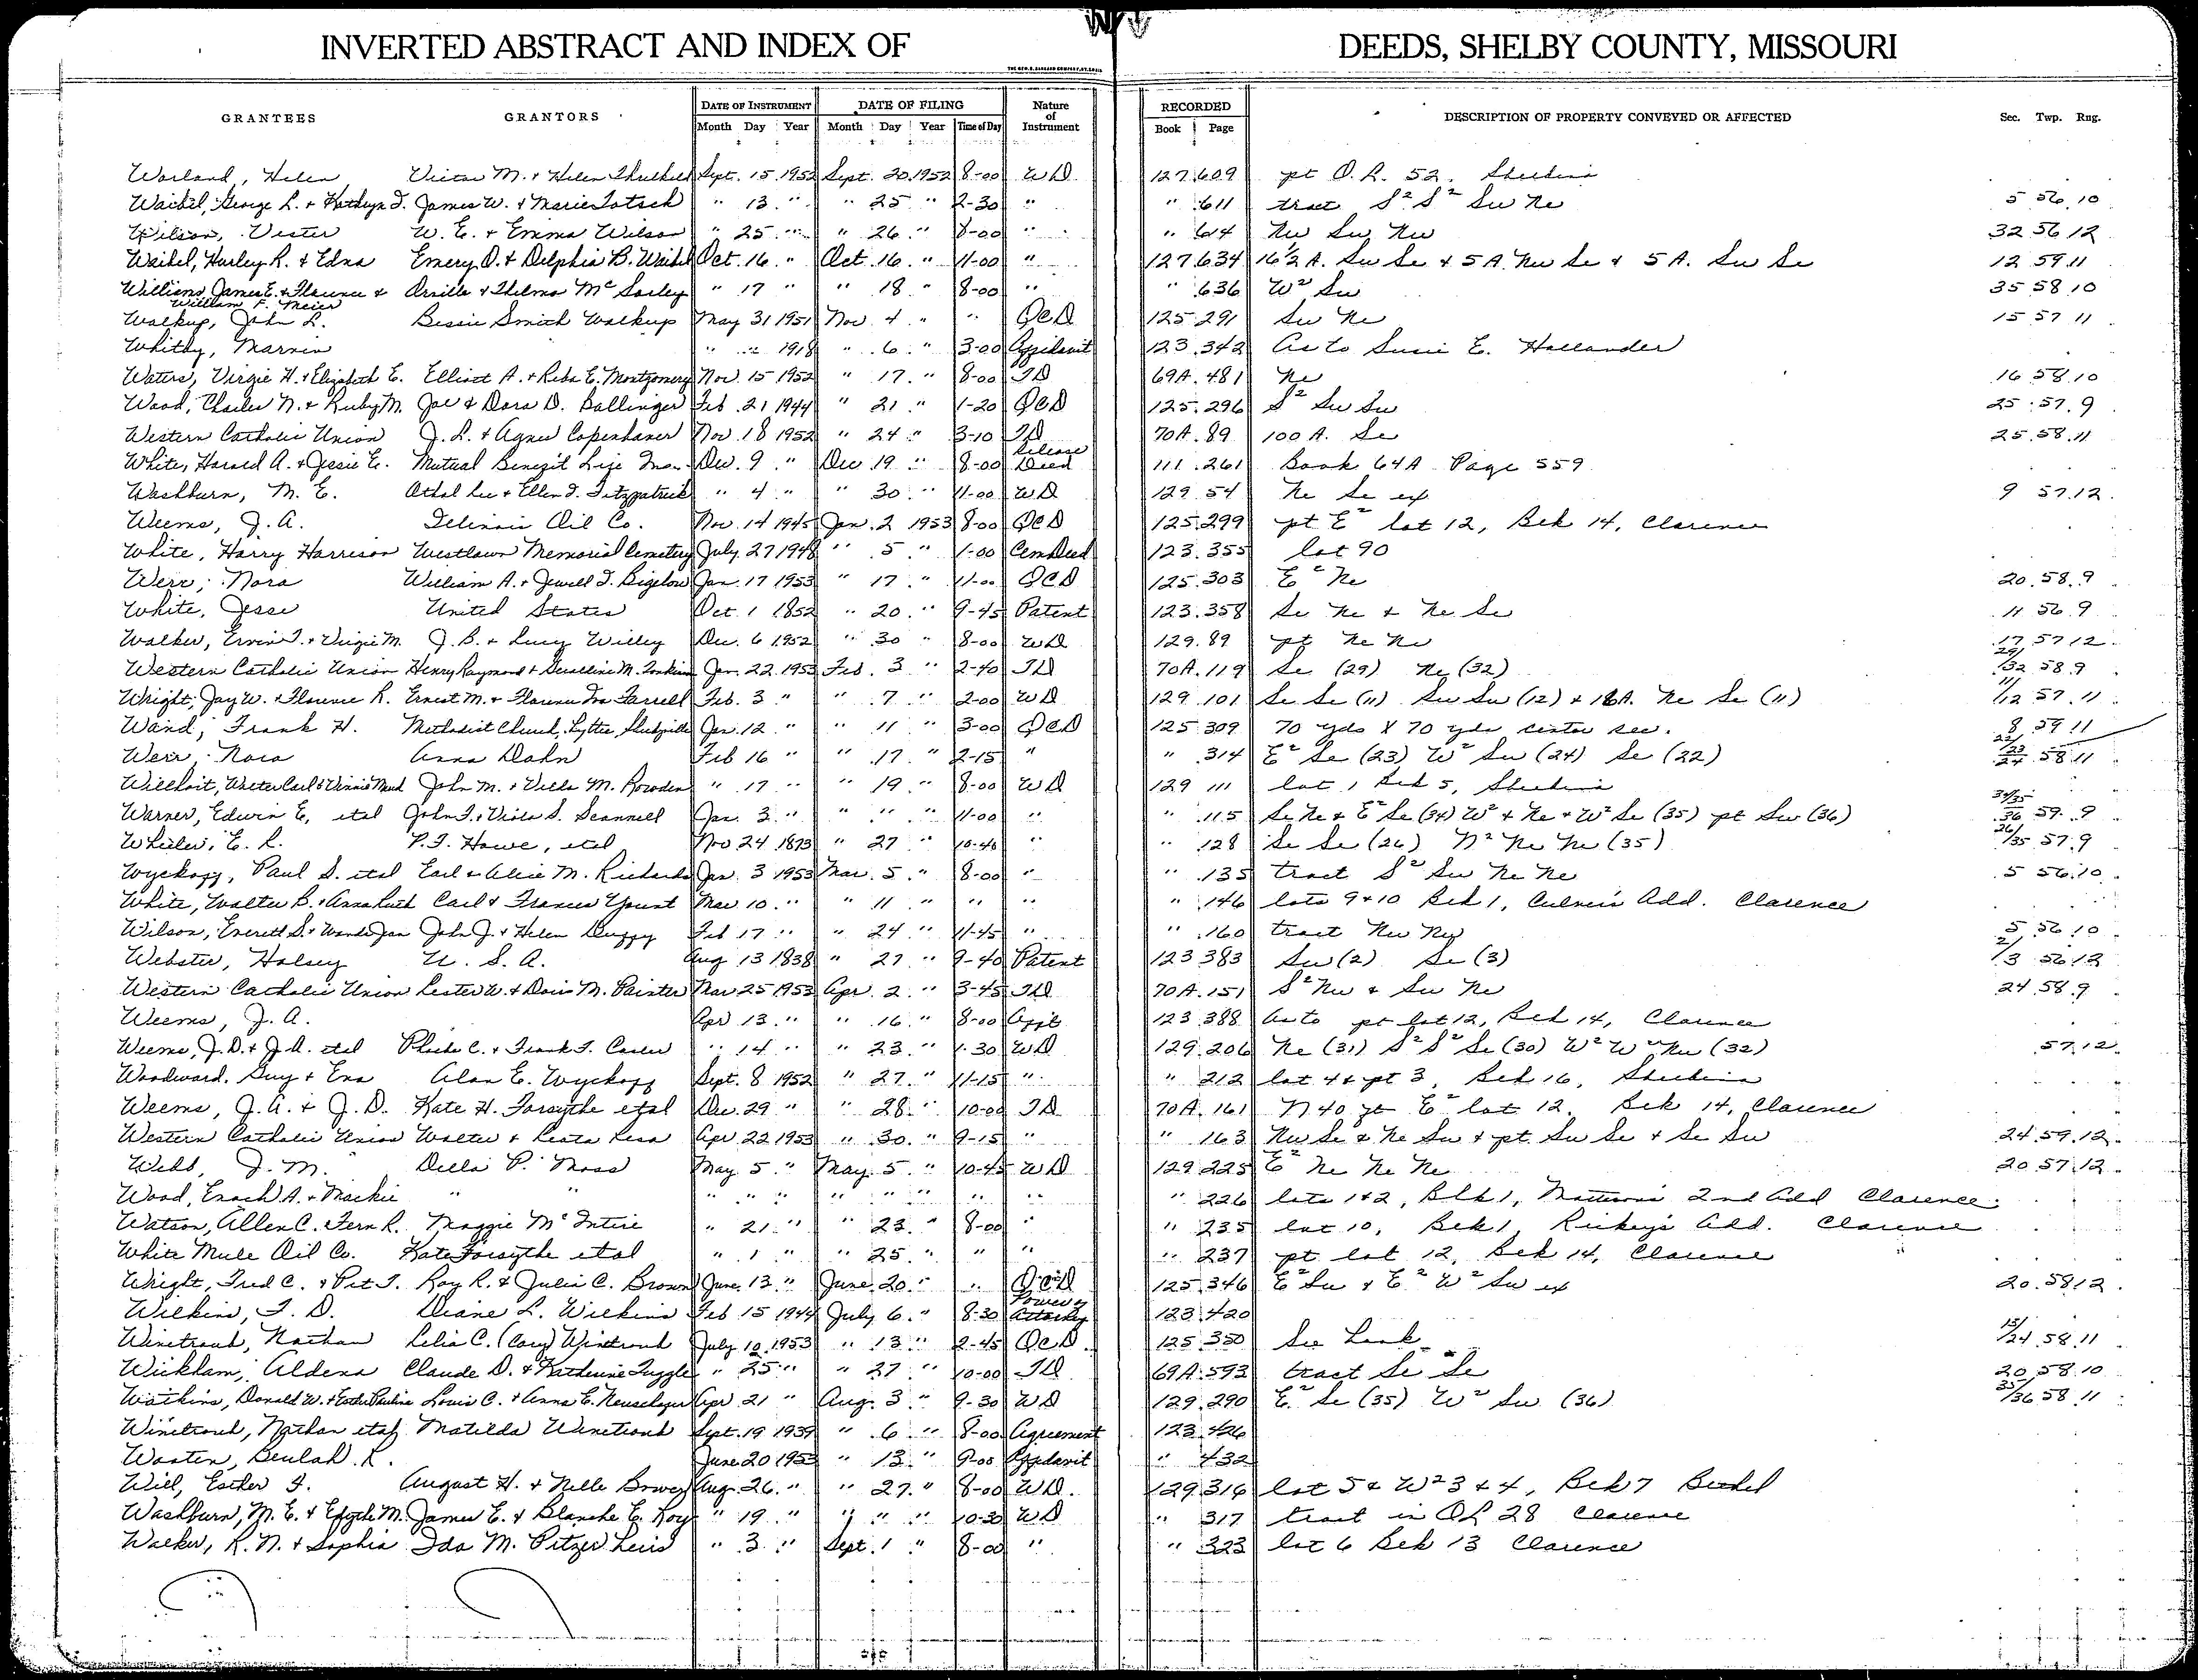 INVERTED ABSTRACT AND INDEX OF DEEDS, SHELBY COUNTY, MISSOURI
GRANTEES GRANTORS DATE OF INSTRUMENT DATE OF FILING Nature of Instrument RECORDED DESCRIPTION OF PROPERTY CONVEYED OR AFFECTED Sec. Twp. Rng.
Month Day Year Month Day Year Time of Day Book Page
Worland, Helen Victor M. & Helen Sept. 15 1952 Sept. 20 1952 8-00 WD 127 609 pt O.L. 52. Shelbina
Waibel, George L. & Kathryn I. James W. & Marie Totsch " 13 " " 25 " 2-30 " " 611 tract S² S² Sw Ne 5 56 10
Wilson, Vester W. E. & Emma Wilson " 25 " " 26 " 8-00 " " 614 Nw Sw Nw 32 56 12
Waibel, Harley R. & Edna Emery O. & Delphia B. Waibel Oct. 16 " Oct. 16 " 11-00 " 127 634 16½ A. Sw Se & 5 A. Nw Se & 5 A. Sw Se 12 59 11
Williams, James E. & Florence & Orville & Thelma McSorley " 17 " " 18 " 8-00 " " 636 W² Sw 35 58 10
William F. Meier
Walkup, John L. Bessie Smith Walkup May 31 1951 Nov. 4 " " QCD 125 291 Sw Ne 15 57 11
Whitby, Marvin " " 1918 " 6 " 3-00 Affidavit 123 342 As to Susie E. Hollander
Waters, Virgie H. & Elizabeth E. Elliott A. & Reba E. Montgomery Nov. 15 1952 " 17 " 8-00 TD 69A 481 Ne 16 58 10
Wood, Charles N. & Ruby M. Joe & Dora D. Ballinger Feb. 21 1944 " 21 " 1-20 QCD 125 296 S² Sw Sw 25 57 9
Western Catholic Union J. L. & Agnes Copenhaver Nov. 18 1952 " 24 " 3-10 TD 70A 89 100 A. Se 25 58 11
White, Harold A. & Jessie E. Mutual Benefit Life Ins. Dec. 9 " Dec 19 " 8-00 Release Deed 111 261 Book 64A Page 559
Washburn, M. E. Othal Lee & Ellen I. Fitzpatrick " 4 " " 30 " 11-00 WD 129 54 Ne Se ex 9 57 12
Weems, J. A. Illinois Oil Co. Nov. 14 1945 Jan. 2 1953 8-00 QCD 125 299 pt E² lot 12, Blk 14, Clarence
White, Harry Harrison Westlawn Memorial Cemetery July 27 1948 " 5 " 1-00 Cem Deed 123 355 lot 90
Weir, Nora William A. & Jewell I. Bigelow Jan. 17 1953 " 17 " 11-00 QCD 125 303 E² Ne 20 58 9
White, Jesse United States Oct. 1 1852 " 20 " 9-45 Patent 123 358 Se Ne & Ne Se 11 56 9
Walker, Ervin T. & Virgie M. J. B. & Lucy Willey Dec. 6 1952 " 30 " 8-00 WD 129 89 pt Ne Ne 17 57 12
Western Catholic Union Henry Raymond & M. Jan. 22 1953 Feb. 3 " 2-40 TD 70A 119 Se (29) Ne (32) 29/32 58 9
Wright, Jay W. & Florence R. Ernest M. & Florence Farrell Feb. 3 " " 7 " 2-00 WD 129 101 Se Se (11) Sw Sw (12) & 16A. Ne Se (11) 11/12 57 11
Waind, Frank H. Methodist Church, Jan. 12 " " 11 " 3-00 QCD 125 309 70 yds X 70 yds center sec. 8 59 11
Weir, Nora Anna Dahn Feb 16 " " 17 " 2-15 " " 314 E² Se (23) W² Sw (24) Se (22) 22/23/24 58 11
Willhoit, Walter Carl & Vinnie Maud John M. & Vella M. Rowden " 17 " " 19 " 8-00 WD 129 111 lot 1 Blk 5, Shelbina
Warner, Edwin E. etal John T. & Viola S. Scannell Jan. 3 " " " " 11-00 " " 115 Se Ne & E² Se (34) W² & Ne & W² Se (35) pt Sw (36) 34/35/36 59 9
Wheeler, E. L. P. T. Howe, etal Nov 24 1873 " 27 " 10-40 " " 128 Se Se (26) N² Ne Ne (35) 26/35 57 9
Wyckoff, Paul S. etal Earl & Alice M. Richards Jan. 3 1953 Mar. 5 " 8-00 " " 135 tract S² Sw Ne Ne 5 56 10
White, Walter B. & Anna Ruth Carl & Frances Yount Mar 10 " " 11 " " " " 146 lots 9+10 Blk 1, Culver's Add. Clarence
Wilson, Everett S. & Wanda Jan John J. & Helen Duffy Feb 17 " " 24 " 11-45 " " 160 tract Nw Nw 5 56 10
Webster, Halsey U. S. A. Aug 13 1838 " 27 " 9-40 Patent 123 383 Sw (2) Se (3) 2/3 56 12
Western Catholic Union Lester W. & Doris M. Painter Mar 25 1953 Apr. 2 " 3-45 TD 70A 151 S² Nw & Sw Ne 24 58 9
Weems, J. A. Apr 13 " " 16 " 8-00 Afft 123 388 As to pt lot 12, Blk 14, Clarence
Weems, J. D. & J. A. etal Phoebe C. & Frank T. Carter " 14 " " 23 " 1-30 WD 129 206 Ne (31) S² S² Se (30) W² W² Nw (32) 57 12
Woodward, Guy & Eva Alan E. Wyckoff Sept. 8 1952 " 27 " 11-15 " " 212 lot 4 & pt 3, Blk 16, Shelbina
Weems, J. A. & J. D. Kate H. Forsythe etal Dec. 29 " " 28 " 10-00 TD 70A 161 N 40 ft E² lot 12 Blk 14, Clarence
Western Catholic Union Walter & Apr 22 1953 " 30 " 9-15 " " 163 Nw Se & Ne Sw & pt Sw Se & Se Sw 24 59 12
Webb, J. M. Della P. Moss May 5 " May 5 " 10-45 WD 129 225 E² Ne Ne Ne 20 57 12
Wood, Enoch A. & Mackie " " " " " " " " " " " 226 lots 1+2, Blk 1, 2nd Add Clarence
Watson, Allen C. Fern R. Maggie McIntire " 21 " " 23 " 8-00 " " 235 lot 10, Blk 1, Rickey's Add. Clarence
White Mule Oil Co. Kate Forsythe etal " 1 " " 25 " " " " 237 pt lot 12, Blk 14, Clarence
Wright, Fred C. & Pet T. Roy R. & Julia C. Brown June 13 " June 20 " " QCD 125 346 E² Sw & E² W² Sw ex 20 58 12
Wilkins, T. D. Diane L. Wilkins Feb 15 1944 July 6 " 8-30 Power of Attorney 123 420
Winetroub, Nathan Lelia C. (Cory) Winetroub July 10 1953 " 13 " 2-45 QCD 125 350 13/24 58 11
Wickham, Aldena Claude D. & Katherine Tuggle " 25 " " 27 " 10-00 TD 69A 593 tract Se Se 20 58 10
Watkins, Donald W. & Esther Pauline Louis C. & Anna E. Apr 21 " Aug. 3 " 9-30 WD 129 290 E² Se (35) W² Sw (36) 35/36 58 11
Winetroub, Nathan etal Matilda Winetroub Sept. 19 1939 " 6 " 8-00 Agreement 123 426
Wooten, Beulah K. June 20 1953 " 13 " 9-00 Affidavit " 432
Will, Esther F. August H. & Nelle Bower Aug. 26 " " 27 " 8-00 WD. 129 316 lot 5 & W² 3 & 4, Blk 7 Bethel
Washburn, M. E. & M. James E. & Blanche E. Roy " 19 " " " " 10-30 WD " 317 tract in OL 28 Clarence
Walker, R. N. & Sophia Ida M. Pitzer Leird " 3 " Sept. 1 " 8-00 " " 323 lot 6 Blk 13 Clarence